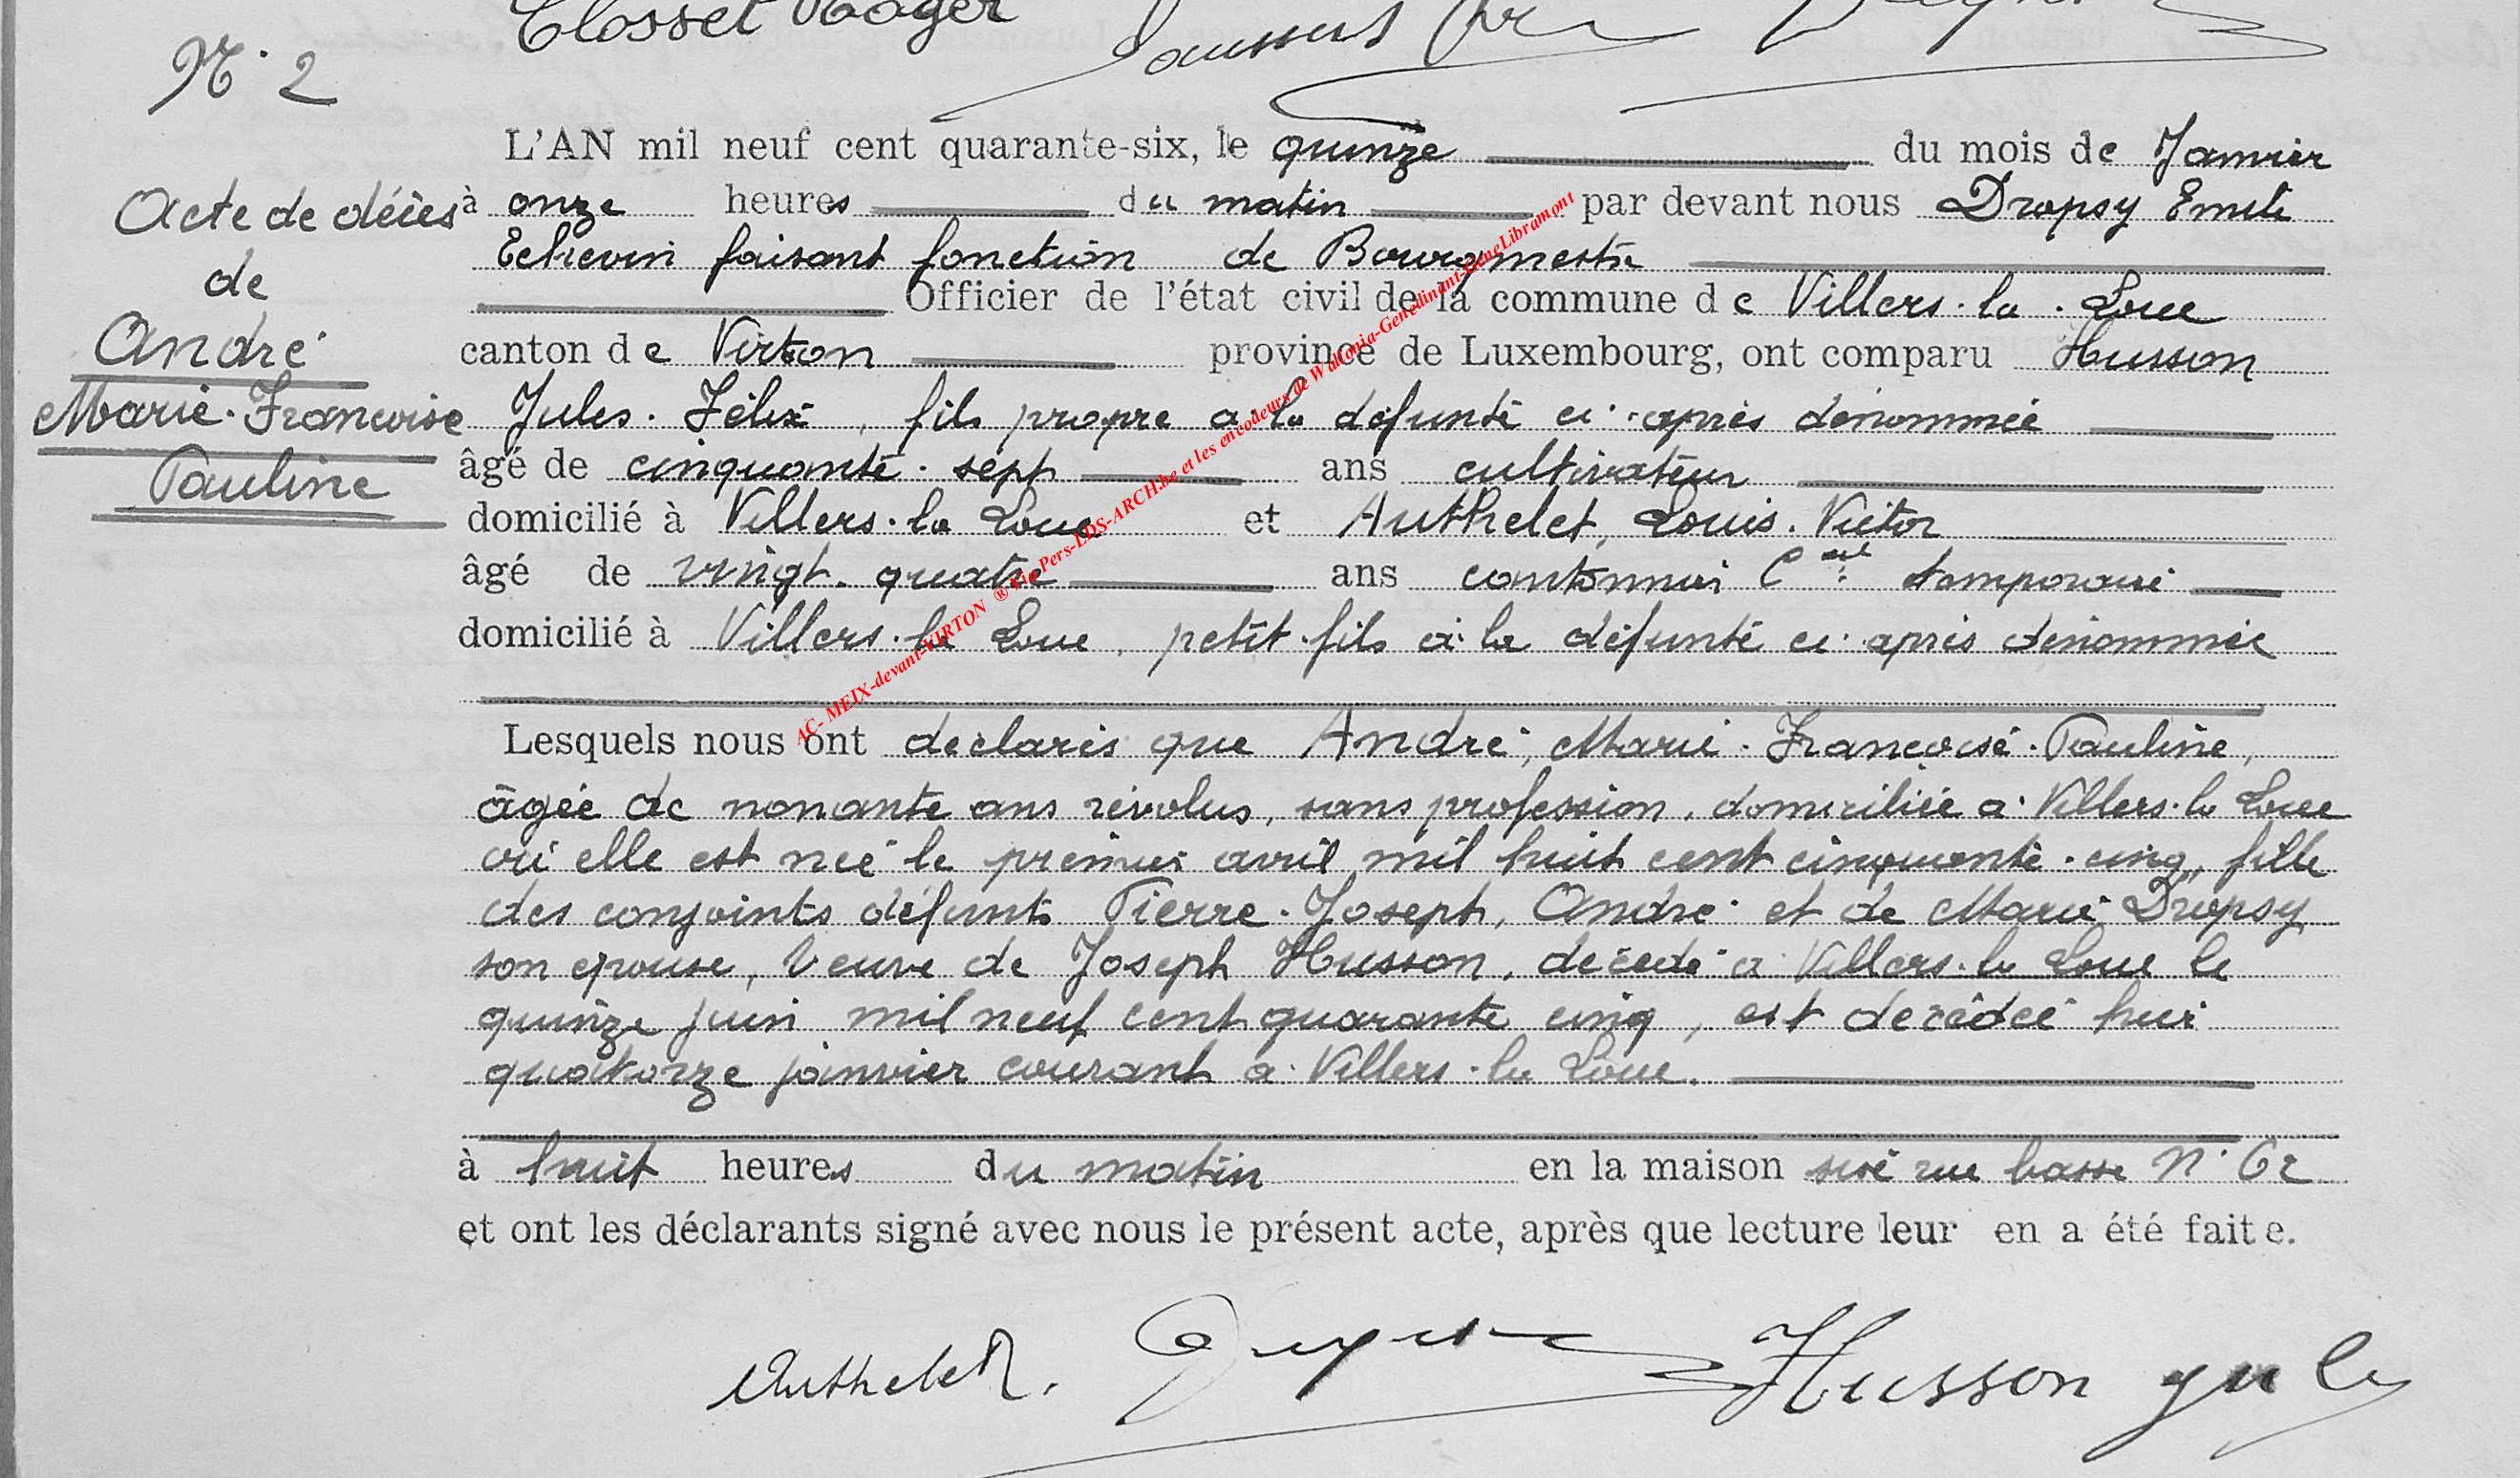 Closset Roger
N° 2
L'AN mil neuf cent quarante-six, le quinze du mois de Janvier
Acte de décès
à onze heures du matin par devant nous Dropsy Emile
Echevin faisant fonction de Bourgmestre
de
Officier de l'état civil de la commune de Villers-la-Loue
André
canton de Virton province de Luxembourg, ont comparu Husson
Marie-Françoise
Jules-Félix, fils propre à la défunte ci-après dénommée
Pauline
âgé de cinquante-sept ans cultivateur
domicilié à Villers-la Loue et Authelet, Louis-Victor
âgé de vingt-quatre ans cantonnier Cal temporaire
domicilié à Villers-la Loue, petit-fils à la défunte ci-après dénommée
Lesquels nous ont declarés que André, Marie-Françoise-Pauline,
âgée de nonante ans révolus, sans profession, domiciliée à Villers-la Loue
où elle est née le premier avril mil huit cent cinquante-cinq, fille
des conjoints défunts Pierre-Joseph, André et de Marie Dropsy
son epouse, Veuve de Joseph Husson, décédé à Villers-la Loue le
quinze juin mil neuf cent quarante cinq, est décédée hier
quatorze janvier courant à Villers-la Loue.
à huit heures du matin en la maison sise rue basse N° 62
et ont les déclarants signé avec nous le présent acte, après que lecture leur en a été faite.
Authelet. Husson Jules
AC- MEIX-devant-VIRTON ® Via Pers-LDS-ARCH.be et les encodeurs de Wallonia-Genedinant-GeneLibramont